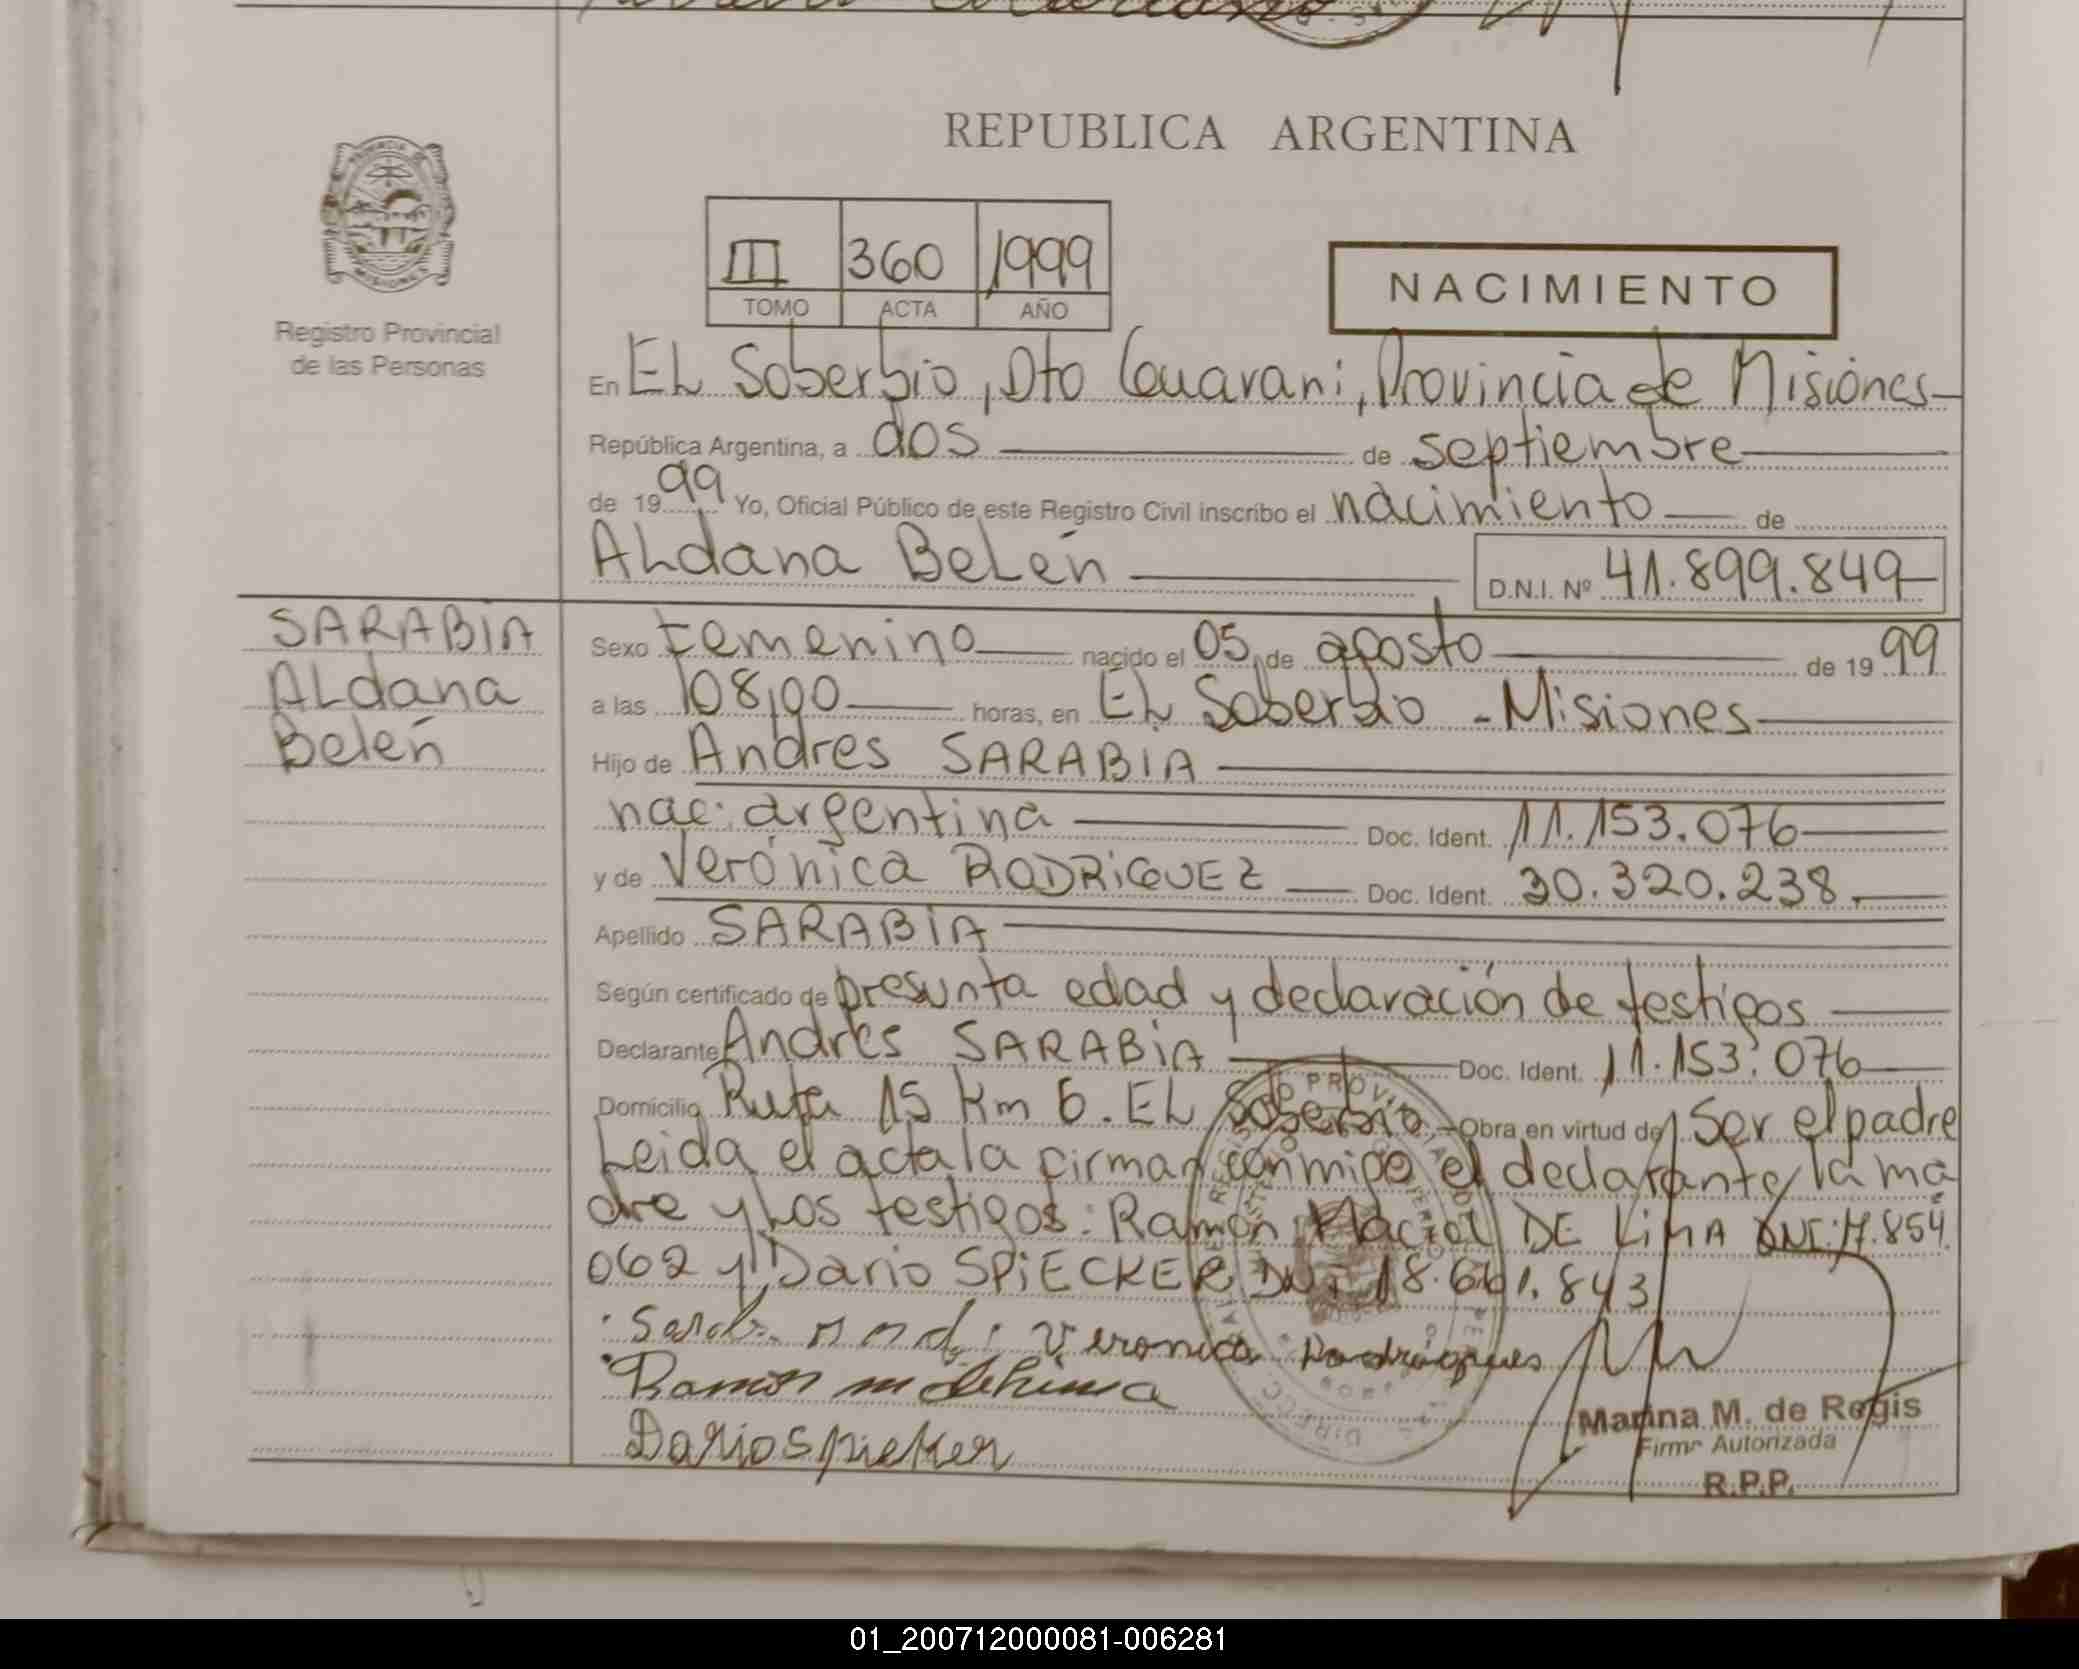 REPUBLICA ARGENTINA
PROVINCIA DE
MISIONES
Registro Provincial
de las Personas
III 360 1999
TOMO ACTA AÑO
NACIMIENTO
En EL Soberbio, Dto Guarani, Provincia de Misiones
República Argentina, a dos de septiembre
de 1999 Yo, Oficial Público de este Registro Civil inscribo el nacimiento de
ALdana BeLén D.N.I. Nº 41.899.849
SARABIA
ALdana
Belén
Sexo Femenino nacido el 05 de agosto de 1999
a las 08,00 horas, en EL Soberbio - Misiones
Hijo de Andres SARABIA
nac: argentina Doc. Ident. 11.153.076
y de Verónica RODRIGUEZ Doc. Ident. 30.320.238.
Apellido SARABIA
Según certificado de presunta edad y declaración de testigos
Declarante Andres SARABIA Doc. Ident. 11.153.076
Domicilio Ruta 15 Km 6. EL Soberbio. Obra en virtud de Ser el padre
Leida el acta la firman conmigo el declarante, la ma
dre y Los testigos: Ramón Maciel DE LIMA DNI: 17.854.
062 y Dario SPIECKER DNI 18.661.843
Veronica Rodrigues
Ramon m delima
Dario spieker
Marina M. de Regis
Firma Autorizada
R.P.P.
01_200712000081-006281